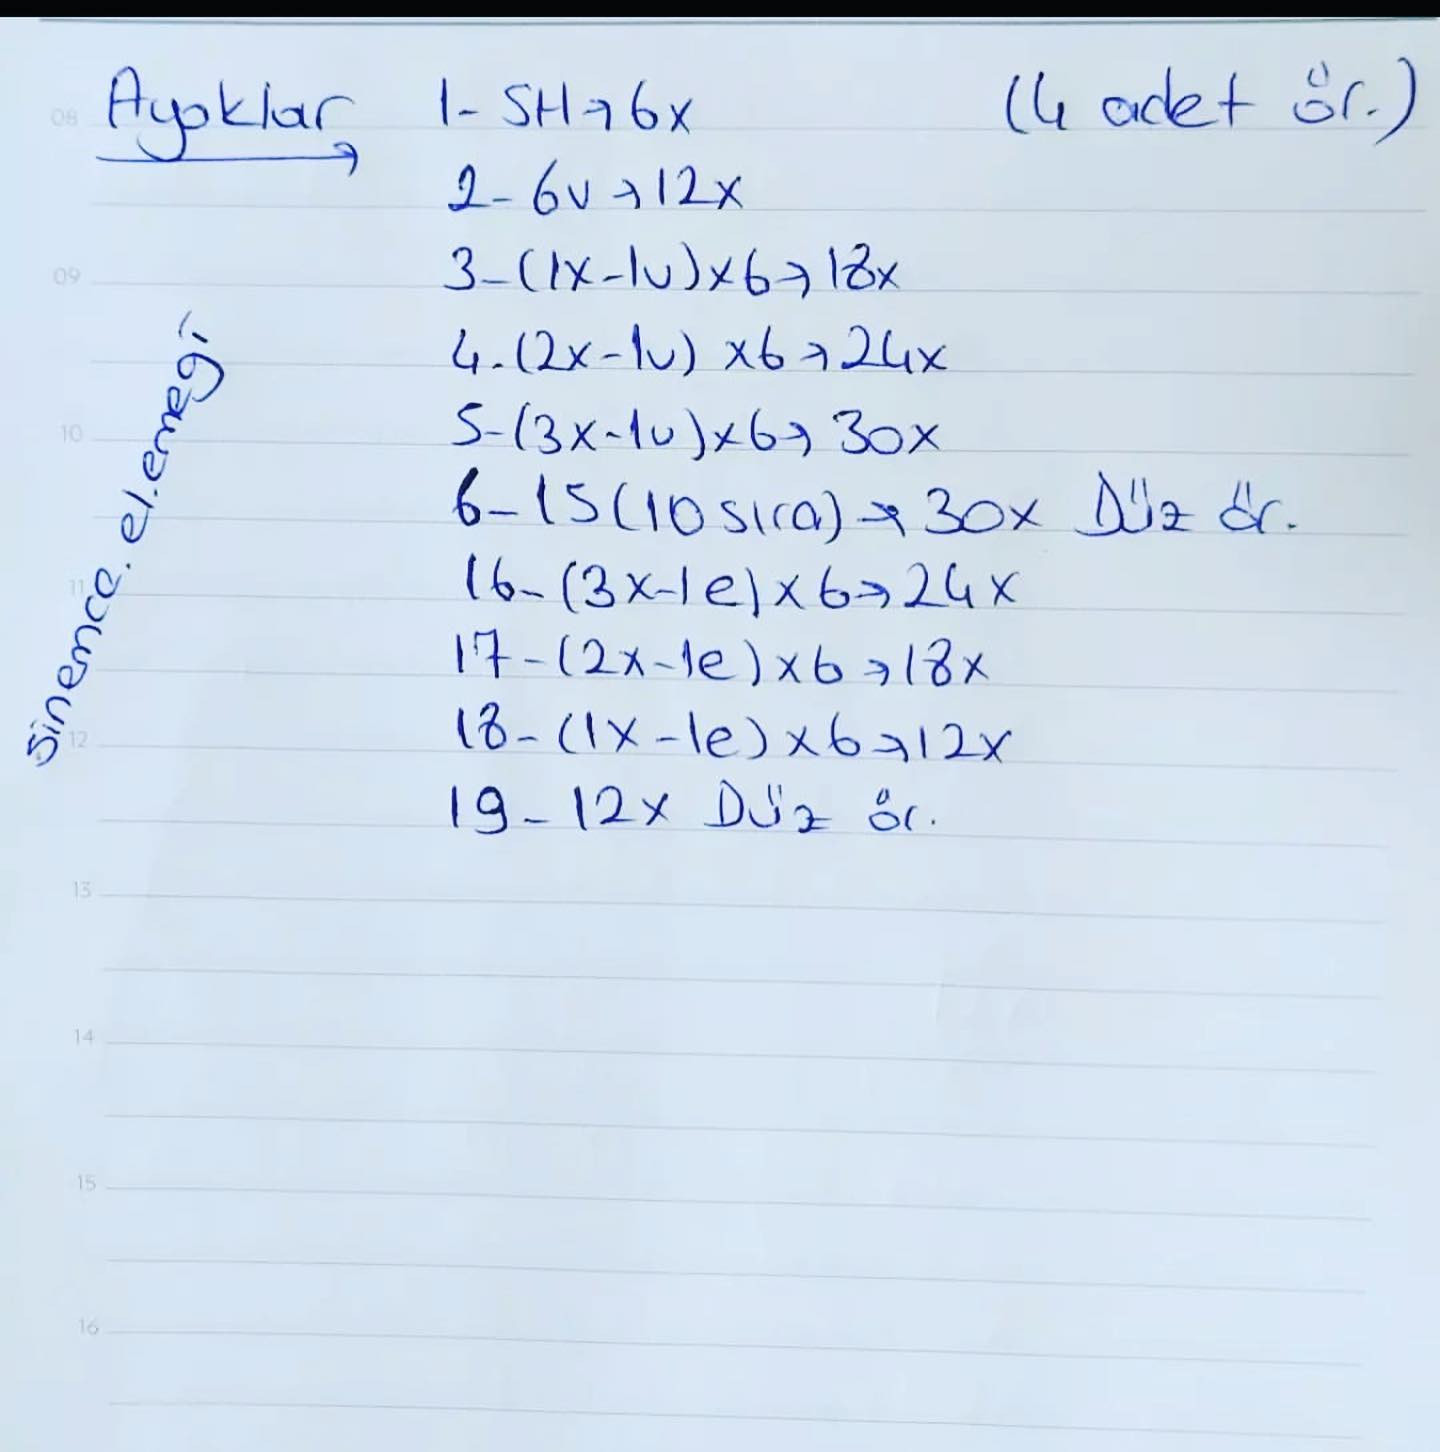 Ayaklar 1- SH→6x (4 adet ör.)
2- 6v→12x
3-(1x-1v)x6→18x
4-(2x-1v) x6→24x
5-(3x-1v)x6→30x
6-15(10 sıra)→30x Düz ör.
16-(3x-1e)x6→24x
17-(2x-1e)x6→18x
18-(1x-1e)x6→12x
19-12x Düz ör.
sinemce.el.emegi
08
09
10
11
12
13
14
15
16